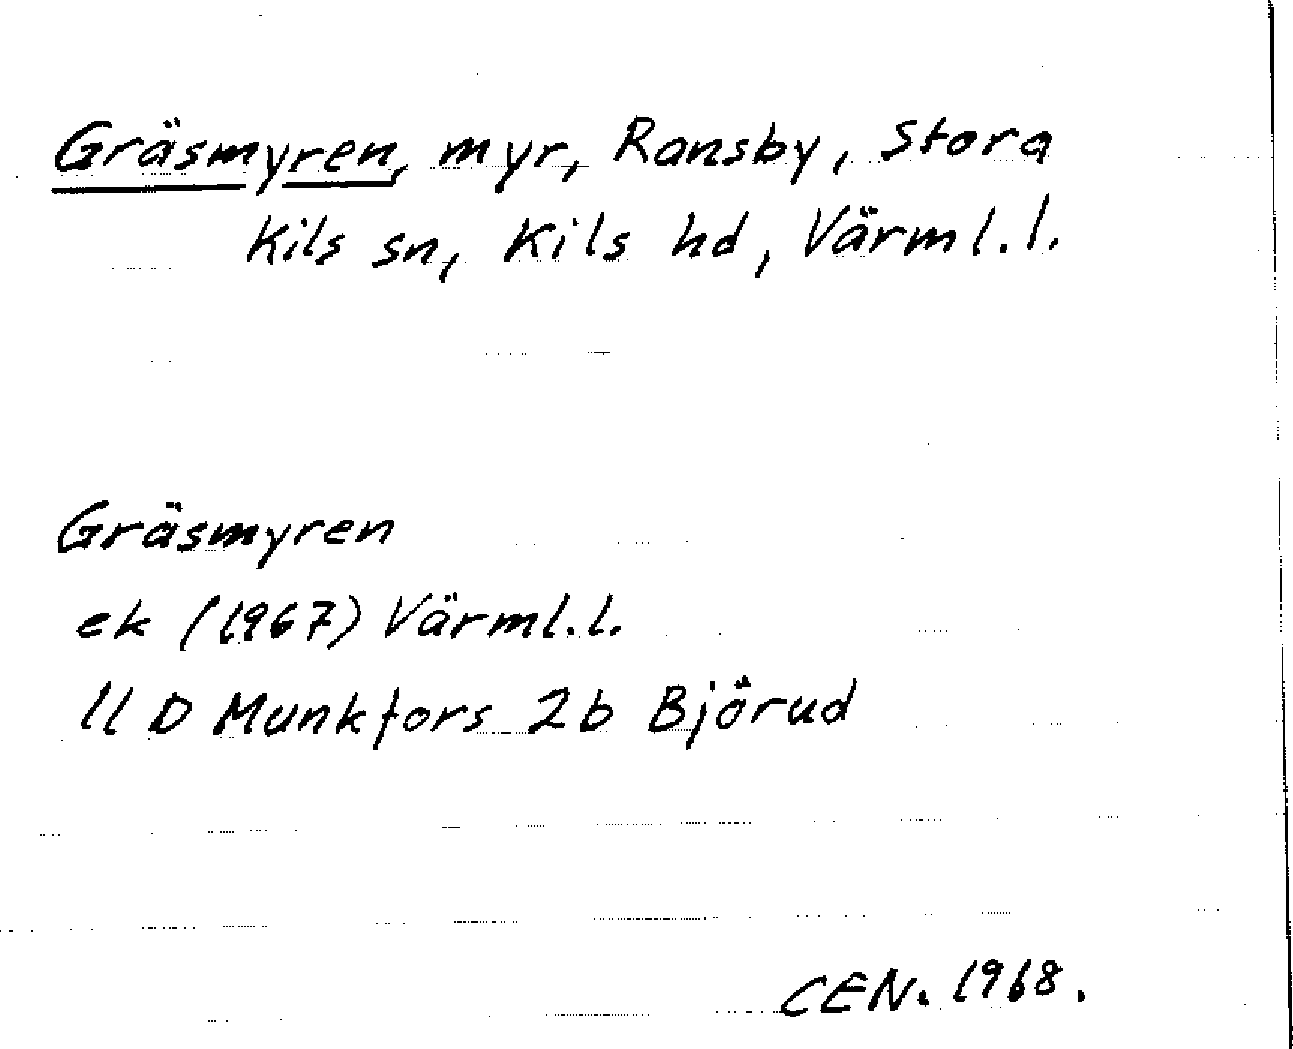 Gräsmyren, myr, Ransby, Stora
Kils sn, Kils hd, Värml. l.
Gräsmyren
ek (1967) Värml. l.
11 D Munkfors 2b Björud
CEN. 1968.